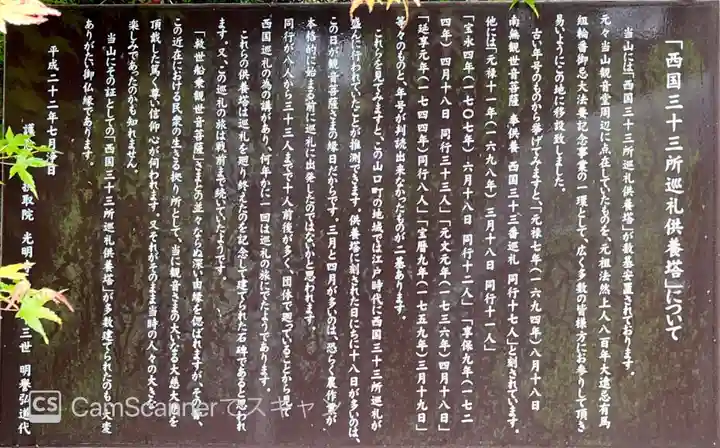 「西国三十三所巡礼供養塔」について
当山には「西国三十三所巡礼供養塔」が数基安置されております。
元々当山観音堂周辺に点在していたものを、元祖法然上人八百年大遠忌・有馬
組輪番御忌大法要記念事業の一環として、広く多数の皆様方にお参りして頂き
易いようにこの地に移設致しました。
古い年号のものから挙げてみますと、「元禄七年(一六九四年)八月十八日
南無観世音菩薩 奉供養 西国三十三番巡礼 同行十七人」と刻されています。
他には「元禄十一年(一六九八年)三月十八日 同行十一人」
「宝永四年(一七〇七年) 六月十八日 同行十二人」「享保九年(一七二
四年) 四月十八日 同行三十三人」「元文元年(一七三六年)四月十八日」
「延享元年(一七四四年)同行八人」「宝暦九年(一七五九年)三月十九日」
等々のものと、年号が判読出来なかったものが二基あります。
これらを見てみますと、この山口町の地域では江戸時代に西国三十三所巡礼が
盛んに行われていたことが推測できます。供養塔に刻された日にちに十八日が多いのは、
この日が観音菩薩さまの縁日だからです。三月と四月が多いのは、恐らく農作業が
本格的に始まる前に巡礼に出発したのではないかと思われます。
同行が八人から三十三人までで十人前後が多く、団体で廻っていることから見て
西国巡礼の為の講があり、何年かに一回は巡礼の旅にでたようであります。
これらの供養塔は巡礼を廻り終えたのを記念して建てられた石碑であると思われ
ます。又、この巡礼の旅は戦前まで続いていたようです。
「救世船乗観世音菩薩」さまとの並々ならぬ深い由縁を偲ばれますが、その昔、
この近在における民衆の生きる拠り所として、当に観音さまの大いなる大慈大悲を
頂戴した篤く尊い信仰心が伺われます。又それがそのまま当時の人々の大きな
楽しみであったのかも知れません。
当山にその証としての「西国三十三所巡礼供養塔」が多数建てられたのも、大変
ありがたい御仏縁であります。
平成二十二年七月 日
摂取院 光明寺 三世 明誉弘道代
CS CamScannerでスキャ